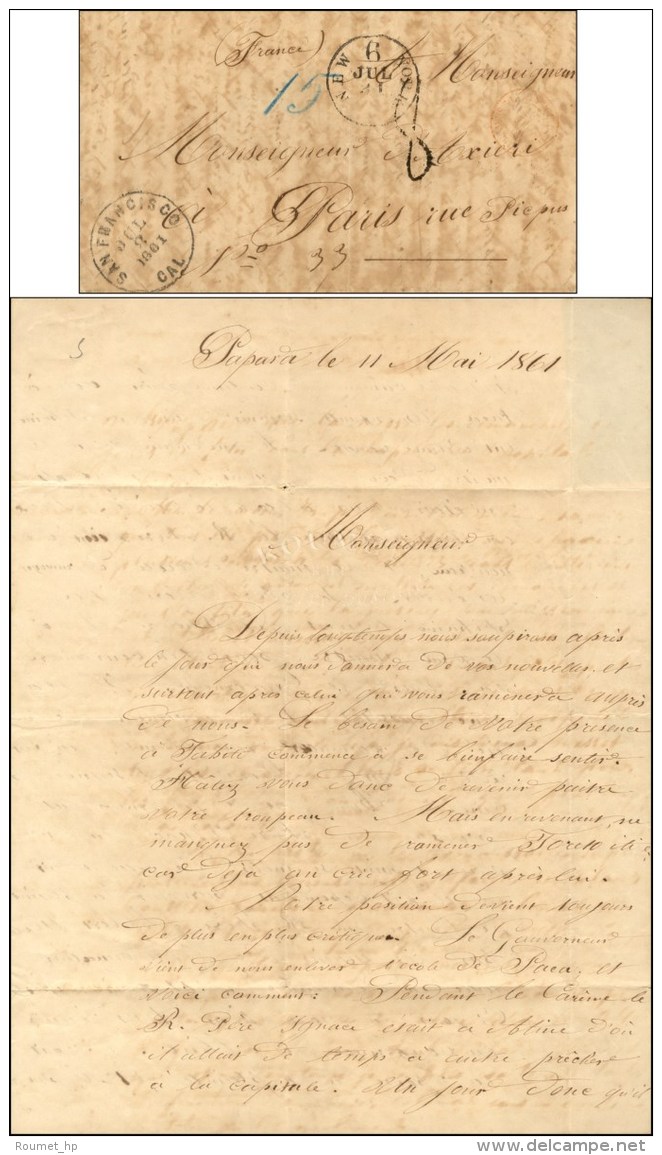 (France)
15
NEW YORK
6
JUL
Monseigneur
8
Monseigneur d'Axieri
SAN FRANCISCO
JUL
1861
CAL
à Paris rue Picpus
No 33
5
Papara le 11 Mai 1861
Monseigneur
Depuis longtemps nous soupirons après
le jour qui nous donnera de vos nouvelles et
surtout après celui qui vous ramènera auprès
de nous. Le besoin de votre présence
à Tahiti commence à se bien faire sentir.
Hâtez vous donc de revenir paitre
votre troupeau. Mais en revenant, ne
manquez pas de ramener
car déjà on crie fort après lui.
Notre position devient toujours
de plus en plus critique. Le Gouverneur
vient de nous enlever l'école de Paea, et
voici comment: Pendant le Carême le
R. Père Ignace était à d'où
il allait de temps à autre prêcher
à la capitale. Un jour donc qu'il
Roumet_hp
delcampe.net